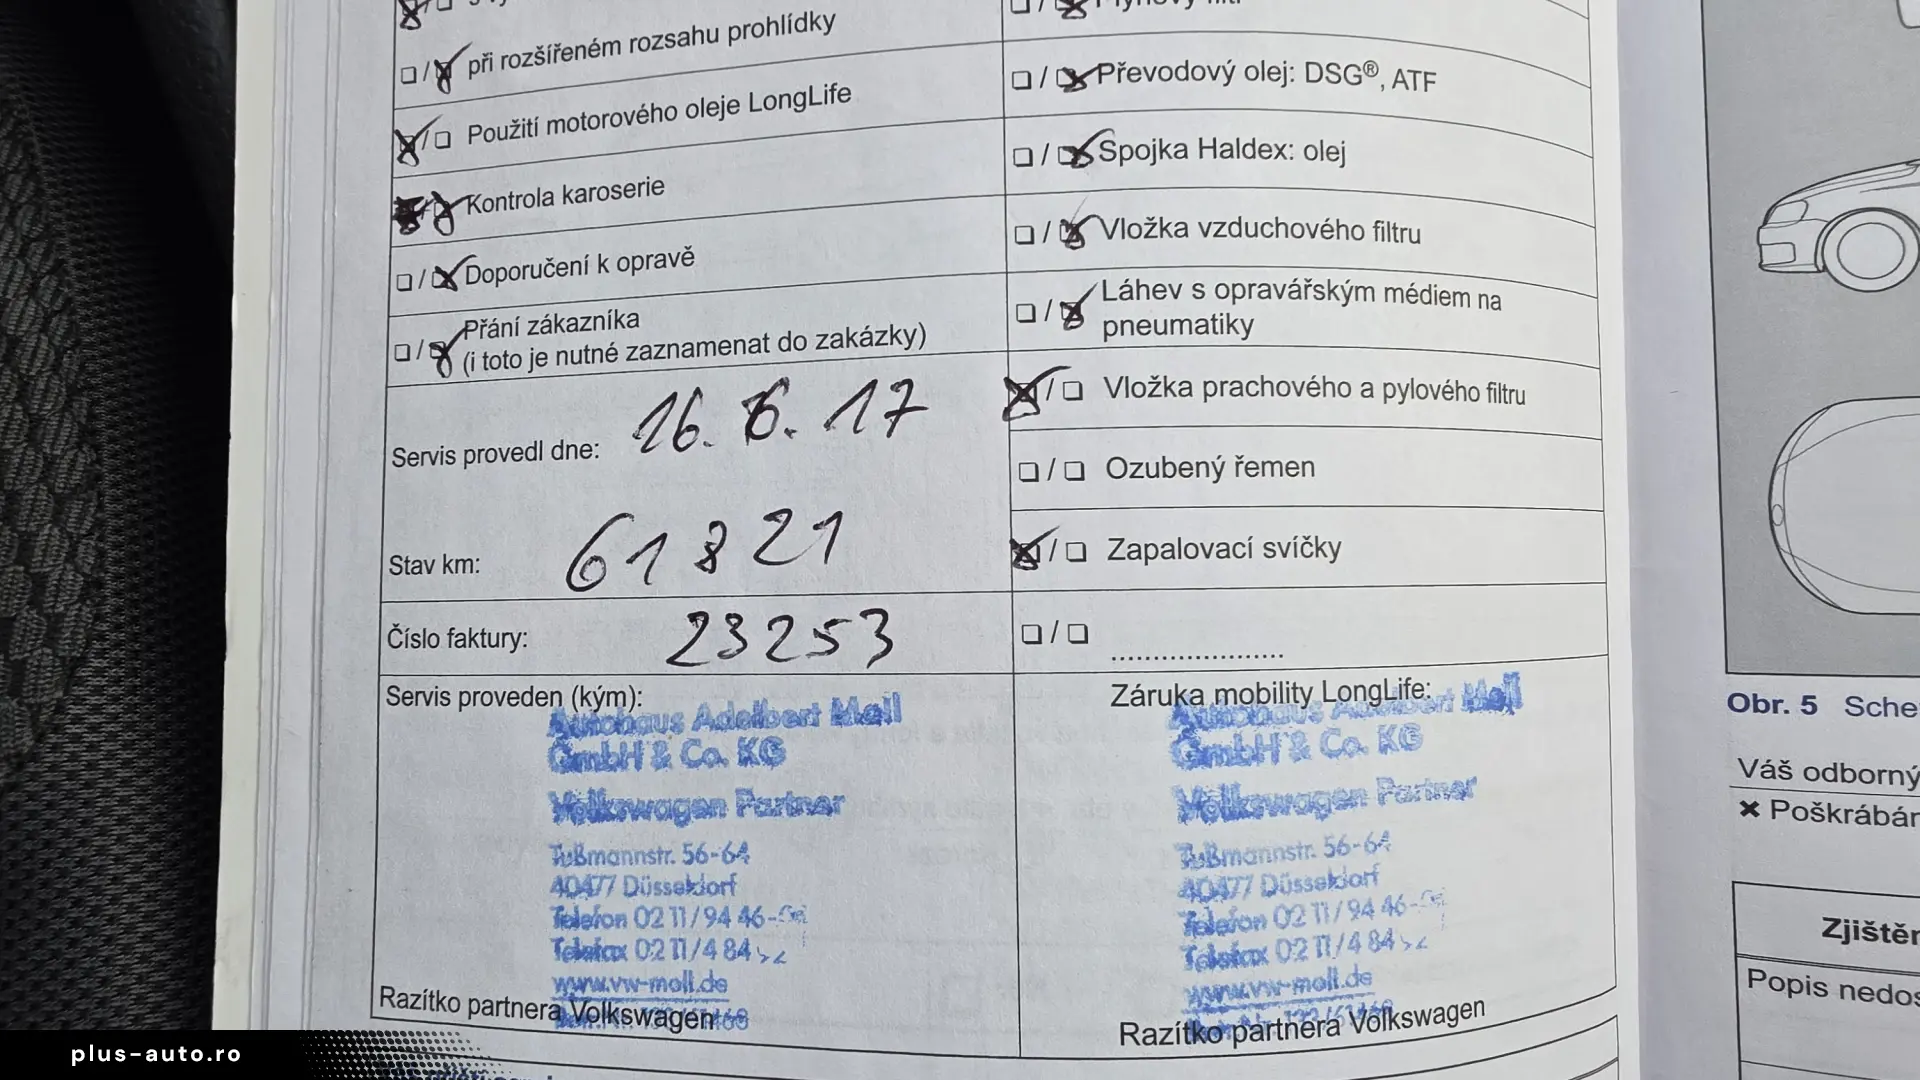 ☒/☐ při rozšířeném rozsahu prohlídky
Použití motorového oleje LongLife
Kontrola karoserie
Doporučení k opravě
Přání zákazníka
(i toto je nutné zaznamenat do zakázky)
Servis provedl dne: 16. 6. 17
Stav km: 61 821
Číslo faktury: 23253
Servis proveden (kým):
Autohaus Adelbert Moll
GmbH & Co. KG
Volkswagen Partner
Tußmannstr. 56-64
40477 Düsseldorf
Telefon 02 11/94 46-
Telefax 02 11/4 84
www.vw-moll.de
Razítko partnera Volkswagen
Převodový olej: DSG®, ATF
Spojka Haldex: olej
Vložka vzduchového filtru
Láhev s opravářským médiem na
pneumatiky
Vložka prachového a pylového filtru
Ozubený řemen
Zapalovací svíčky
....................
Záruka mobility LongLife:
Autohaus Adelbert Moll
GmbH & Co. KG
Volkswagen Partner
Tußmannstr. 56-64
40477 Düsseldorf
Telefon 02 11/94 46-
Telefax 02 11/4 84
www.vw-moll.de
Razítko partnera Volkswagen
Obr. 5 Sche
Váš odborný
✖ Poškrábán
Zjištěn
Popis nedos
plus-auto.ro